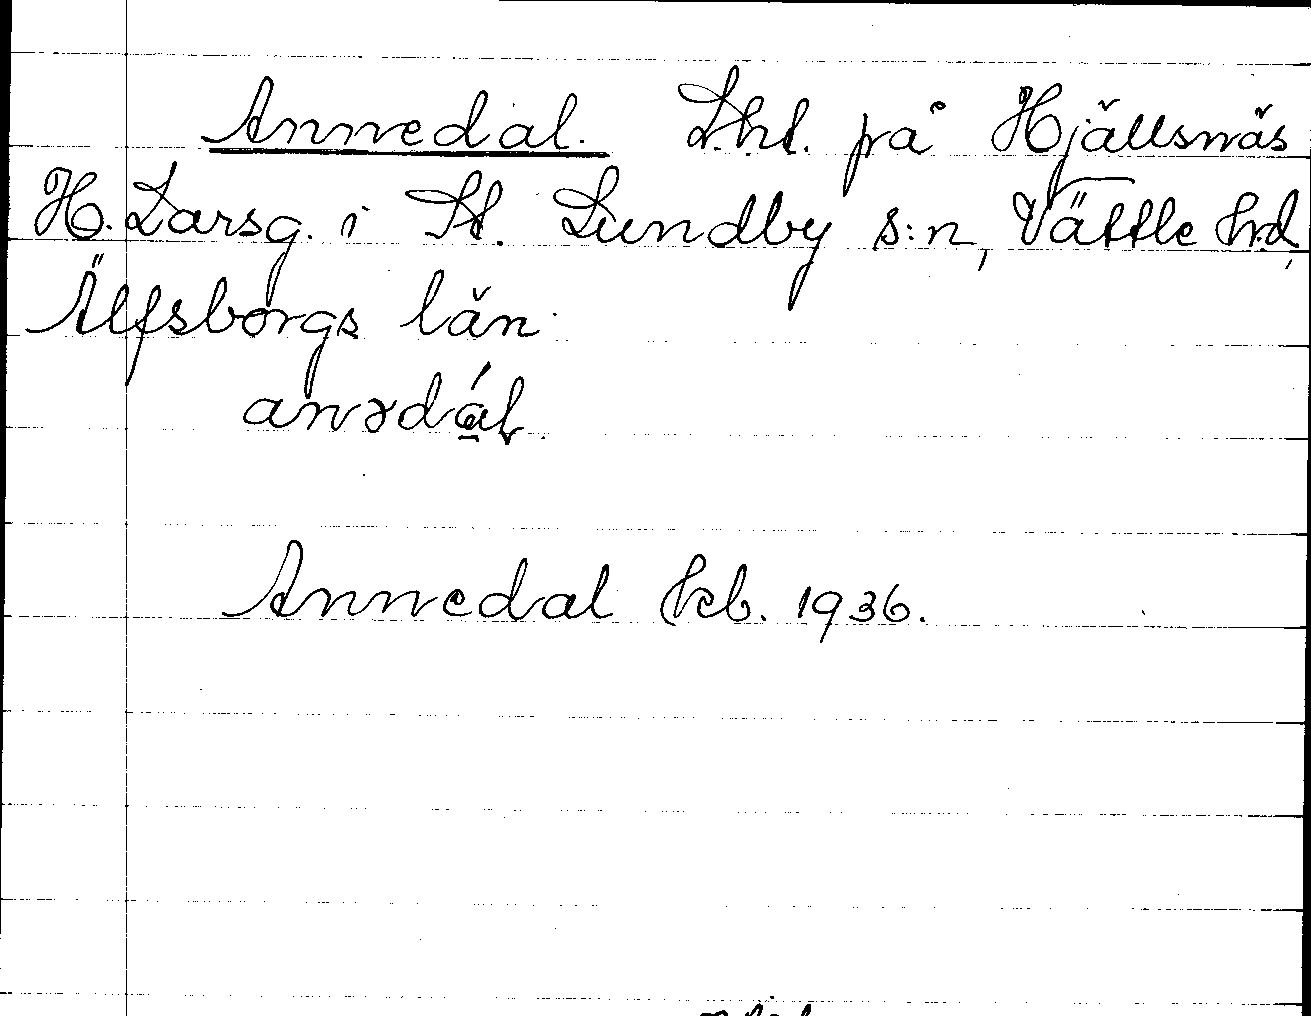 Annedal. L.ht. på Hjällsnäs
H. Larsg. i St. Lundby s:n, Vättle hrd,
Älfsborgs län
anədál.
Annedal hcb. 1936.